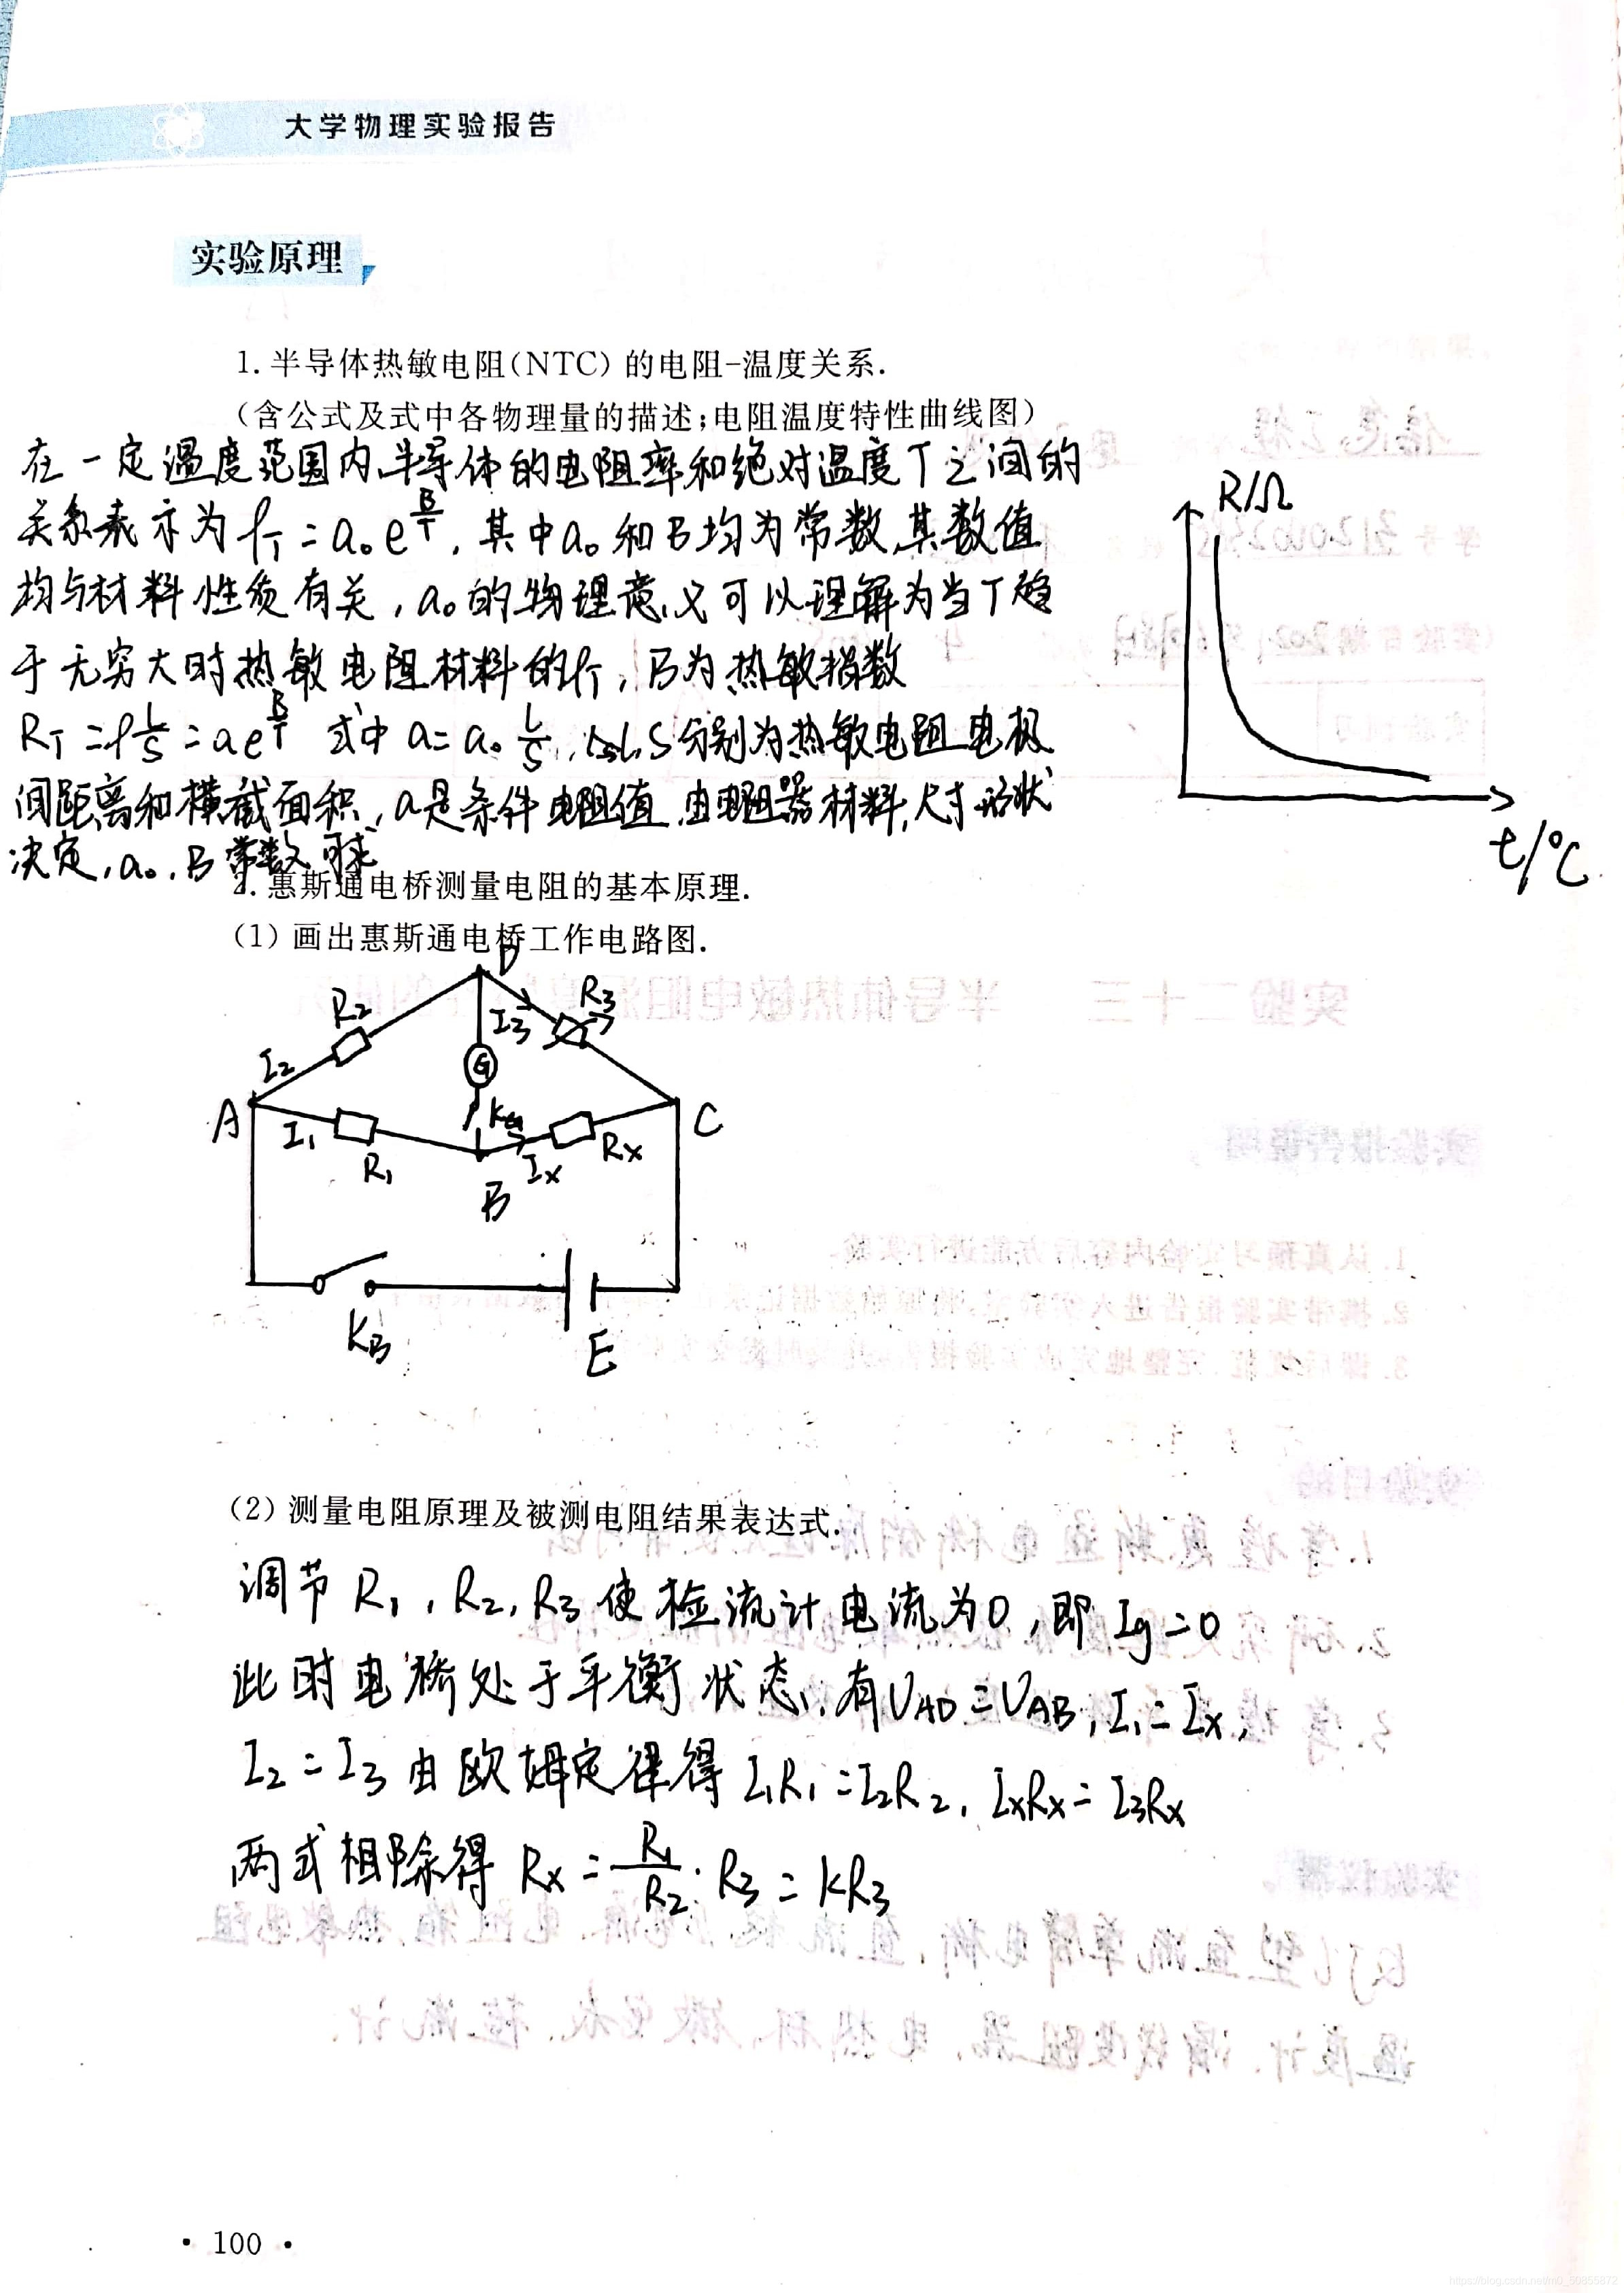 大学物理实验报告
实验原理
1. 半导体热敏电阻(NTC) 的电阻-温度关系.
(含公式及式中各物理量的描述;电阻温度特性曲线图)
在一定温度范围内,半导体的电阻率和绝对温度T之间的
关系表示为 ρT = a₀e^(B/T), 其中a₀和B均为常数,其数值
均与材料性质有关, a₀的物理意义可以理解为当T趋
于无穷大时热敏电阻材料的ρT, B为热敏指数
RT = ρ L/S = ae^(B/T) 式中 a = a₀ L/S, L、S分别为热敏电阻电极
间距离和横截面积, a是条件电阻值,由电阻器材料,尺寸形状
决定, a₀, B常数可求
R/Ω
t/°C
2. 惠斯通电桥测量电阻的基本原理.
(1) 画出惠斯通电桥工作电路图.
D
R2
I2
I3
R3
G
A
I1
R1
KG
B
Ix
Rx
C
KB
E
(2) 测量电阻原理及被测电阻结果表达式.
调节 R1, R2, R3 使检流计电流为0, 即 Ig = 0
此时电桥处于平衡状态, 有UAD = UAB, I1 = Ix,
I2 = I3 由欧姆定律得 I1R1 = I2R2, IxRx = I3Rx
两式相除得 Rx = R1/R2 · R3 = kR3
· 100 ·